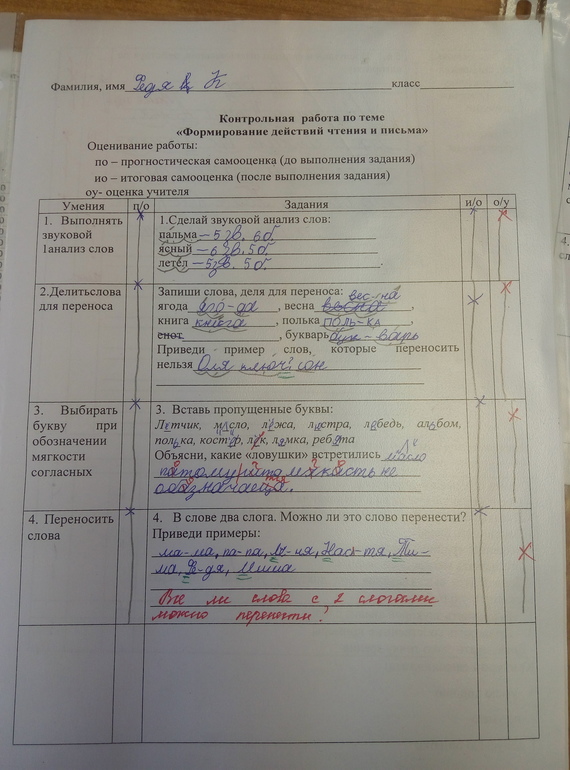 Фамилия, имя Федя К класс
Контрольная работа по теме
«Формирование действий чтения и письма»
Оценивание работы:
по – прогностическая самооценка (до выполнения задания)
ио – итоговая самооценка (после выполнения задания)
оу- оценка учителя
Умения п/о Задания и/о о/у
1. Выполнять звуковой 1анализ слов
1.Сделай звуковой анализ слов:
пальма – 5 зв. 6 б.
ясный – 6 зв. 5 б.
летел – 5 зв. 5 б.
2.Делитьслова для переноса
Запиши слова, деля для переноса: вес-на
ягода яго-да , весна весна ,
книга книга , полька поль-ка ,
енот , букварь бук-варь
Приведи пример слов, которые переносить
нельзя Оля ключ сон
3. Выбирать букву при обозначении мягкости согласных
3. Вставь пропущенные буквы:
Летчик, масло, лужа, люстра, лебедь, альбом,
полька, костёр, лук, лямка, ребята
Объясни, какие «ловушки» встретились масло
потому что мякость не
обозначаеца.
4. Переносить слова
4. В слове два слога. Можно ли это слово перенести?
Приведи примеры:
ма-ма, па-па, А-ня, Нас-тя, Ти-
ма, Ф-дя, Миша
Все ли слова с 2 слогами
можно перенести?